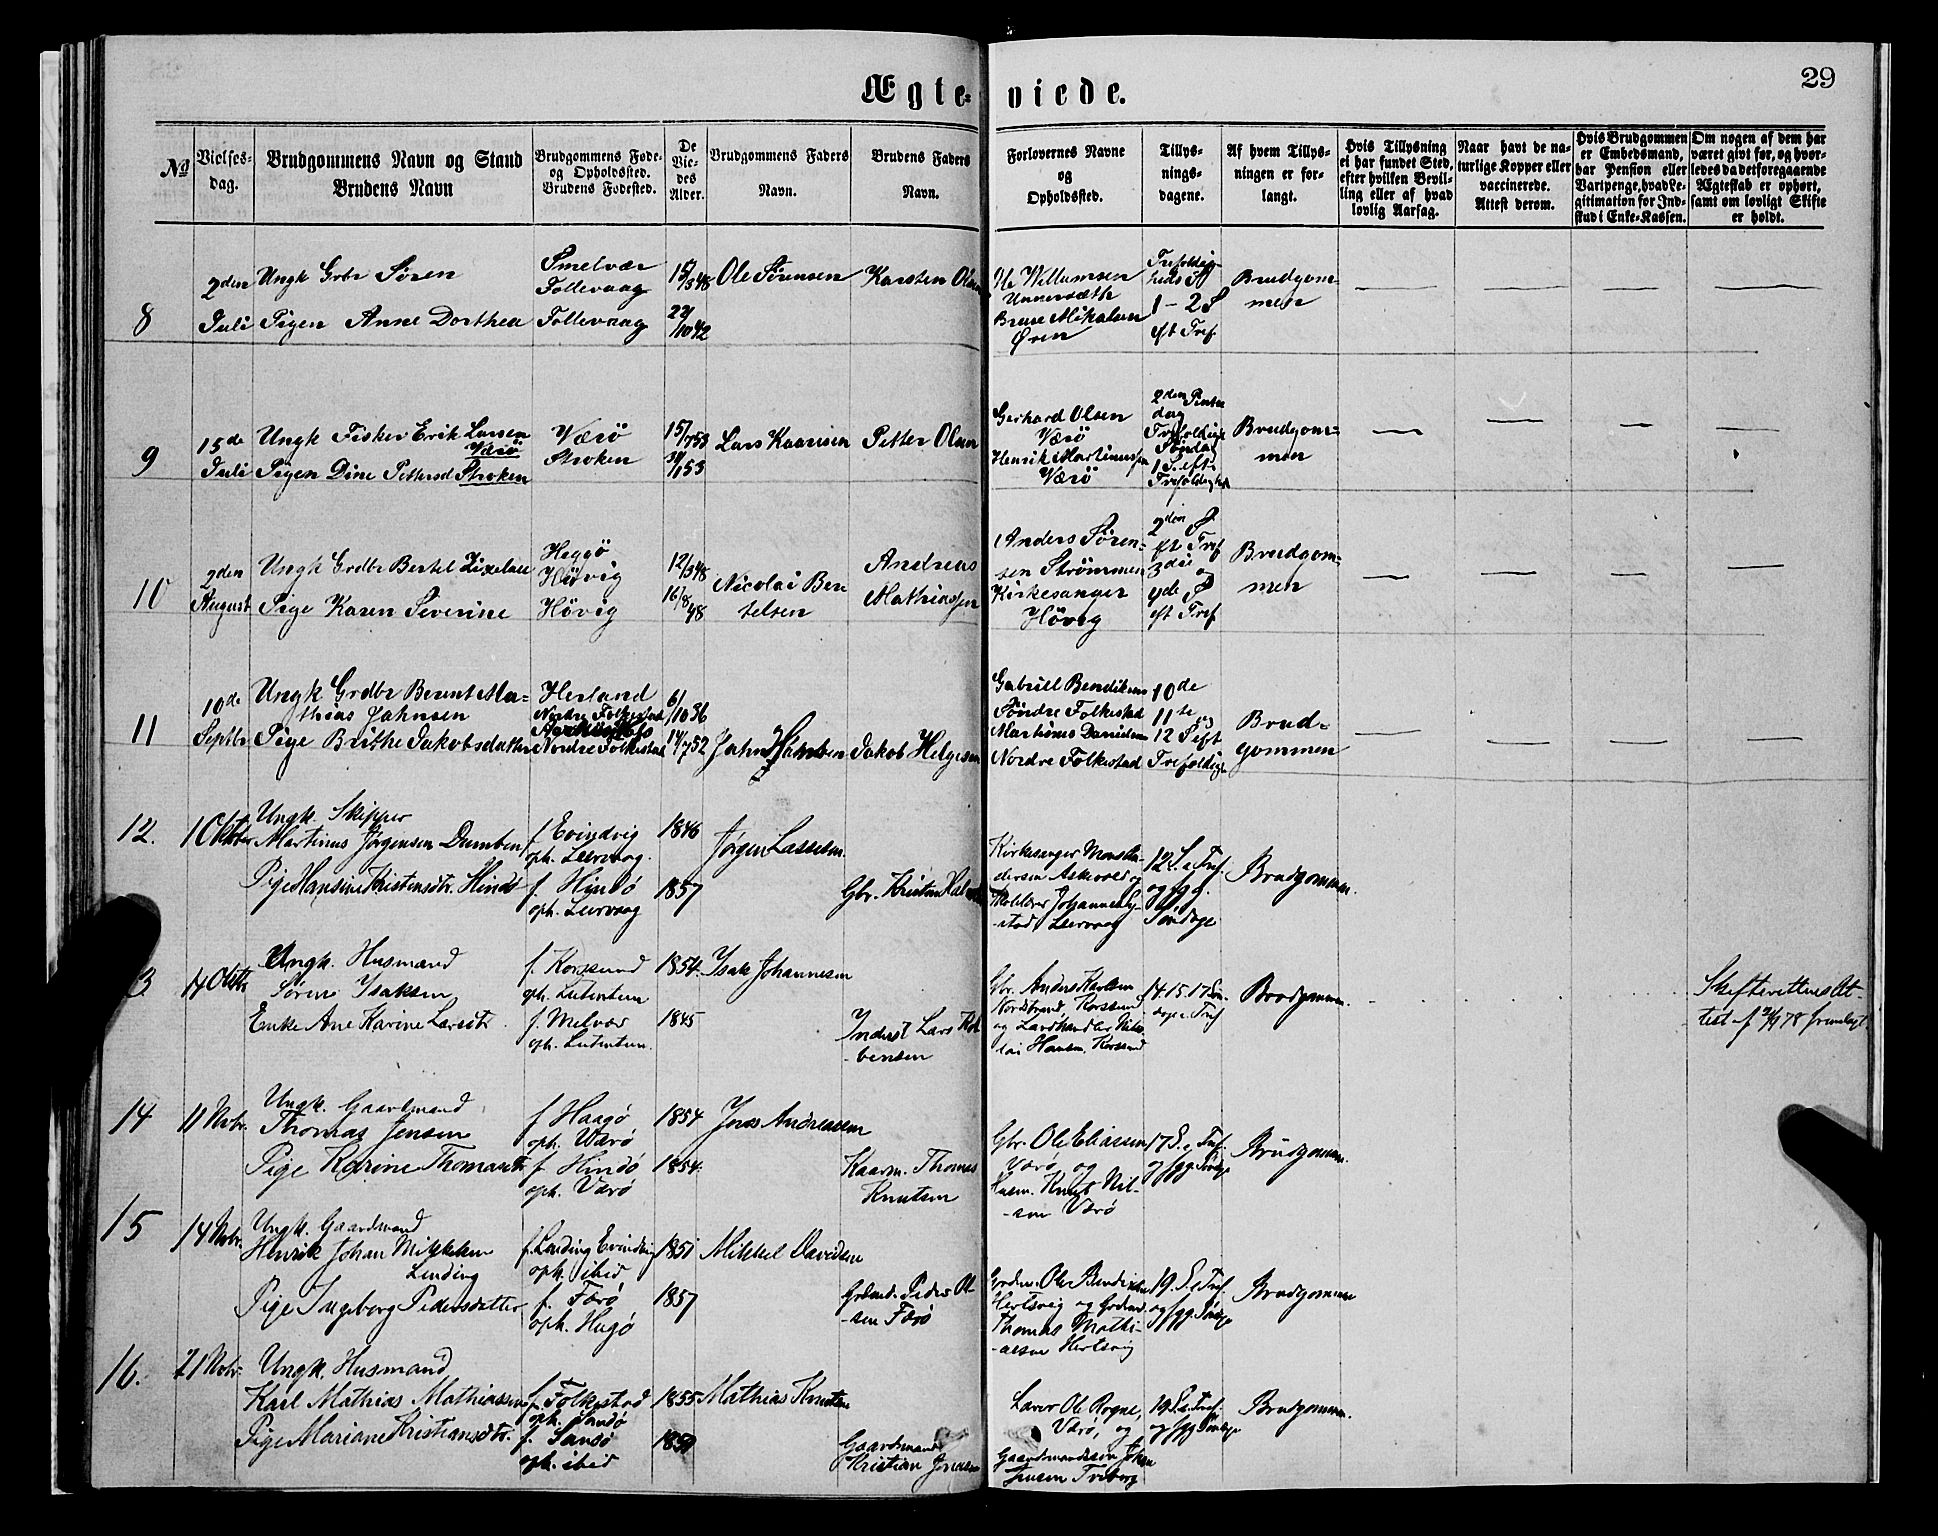 29
Ægteviede.
No
Vielses-
dag.
Brudgommens Navn og Stand
Brudens Navn
Brudgommens Føde-
og Opholdssted.
Brudens Fødested.
De
Vie-
des
Alder.
Brudgommens Faders
Navn.
Brudens Faders
Navn.
Forlovernes Navne
og
Opholdssted.
Tillys-
nings-
dagene.
Af hvem Tillys-
ningen er for-
langt.
Hvis Tillysning
ei har fundet Sted,
efter hvilken Bevil-
ling eller af hvad
lovlig Aarsag.
Naar havt de na-
turlige Kopper eller
vaccinerede.
Attest derom.
Hvis Brudgommen
er Embedsmand,
har Pension eller
Vartpenge, hvad Le-
gitimation for Ind-
skud i Enke-Kassen.
Om nogen af dem har
været gift før, og hvor-
ledes da det foregaaende
Ægteskab er ophørt,
samt om lovligt Skifte
er holdt.
8
2den
Juli
Ungk Grbr Søren
Pigen Anne Dorthea
Smelvær
Follevaag
Follevaag
15/3 48
22/10 42
Ole Sørensen
Karsten Olsen
Ole Willumsen
Unnersæth
Brue Mikalsen
Øren
Trefoldig-
heds S
1 - 2 S
eft Tref
Brudgom-
men
9
15de
Juli
Ungk Fisker Erik Larsen
Værö
Pigen Dine Pettersd Stroken
Værö
Stroken
15/7 53
3/1 53
Lars Kaarisen
Petter Olsen
Gerhard Olsen
Værö
Henrik Martinussen
Værö
2den Pintse
dag
Trefoldigh
Søndag
1 S. eft
Trefoldighed
Brudgom-
men
10
2den
August
Ungk Grdbr Bertel Zixelau
Pige Karen Severine
Heggö
Hövig
Hövig
12/3 48
16/8 48
Nicolai Ber
telsen
Andreas
Mathiassen
Anders Søren-
sen Strømmen
Kirkesanger
Hövig
2den S
eft Tref
3die og
4de S
eft Tref
Brudgom-
men
11
10de
Septbr
Ungk Grdbr Berent Ma-
thias Jahnsen
Pige Brithe Jakobsdatter
Herland
Nordre Folkestad
Nordre Folkestad
6/10 36
14/7 52
Jahn Hansen
Jakob Helgesen
Gabriel Bendiksen
Söndre Folkestad
Martinus Danielsen
Nordre Folkestad
10de
11te og
12 S eft
Trefoldigh
Brud-
gommen
12.
1 Oktbr
Ungk. Skipper
Martinus Jørgensen Dumben
Pige Hansine Kristensdtr. Hindø
f. Evindvig
oph. Leervaag.
f. Hindø
oph. Leervaag
1846
1857
Jørgen Lassesen.
Gbr. Kristen
Kirkesanger Mons An-
dersen Askevold og
Johannes
Leervaag
12 S. e. Tref.
og fgg.
Søndage
Brudgommen.
3.
14 Oktb
Ungk. Husmand
Søren Isaksen
Enke Ane Karine Larsdtr
f. Korssund
oph. Lutentun
f. Melvær
oph. Lutentun.
1854.
1845
Isak Johannesen
Inderst Lars Kol
-bensen
Gbr. Anders Karlsen
Nordstrand, Korssund
og Landhandler Niko-
lai Hansen, Korssund
14. 15. 17 Søn-
dage e. Tref
Brudgommen.
Skifterettens At-
test af 2/9 78 fremlagt.
14
11 Novbr.
Ungk. Gaardmand
Thomas Jensen
Pige Karine Thomasdtr
f. Haagø
oph. Værø
f. Hindø
oph. Værø
1854
1854.
Jens Andreassen
Kaarm. Thomas
Knutsen
Gbr. Ole Eliassen
Værø og
Husm. Knut Nil-
-sen Værø
17 S. e. Tref.
og fgg. Søndge
Brudgommen.
15
14 Novbr.
Ungk. Gaardmand
Henrik Johan Mikkelsen
Lending
Pige Ingeborg Pedersdatter
f. Lending Evindvig
oph. ibid
f. Færø
oph. Hugø
1851
1857
Mikkel Davidsen
Grdmd. Peder Ol-
-sen Færø
Grdm. Ole Bendixen
Hertsvig og Grdmd.
Thomas Mathi-
-assen Hertsvig
19. S. e. Tref
og fgg. Søndge
Brudgommen
16.
21 Novbr.
Ungk. Husmand
Karl Mathias Mathiassen
Pige Mariane Kristiansdtr.
f. Folkestad
oph. Sandø
f. Sandø
oph. ibid
1855
Mathias Knutsen
Gaardmand
Kristian Jonassen
Lærer Ole Rogne,
Værø, og
Gaardmandssøn Johan
Jensen
19 S. e. Tref.
og fgg Søndage
Brudgommen.